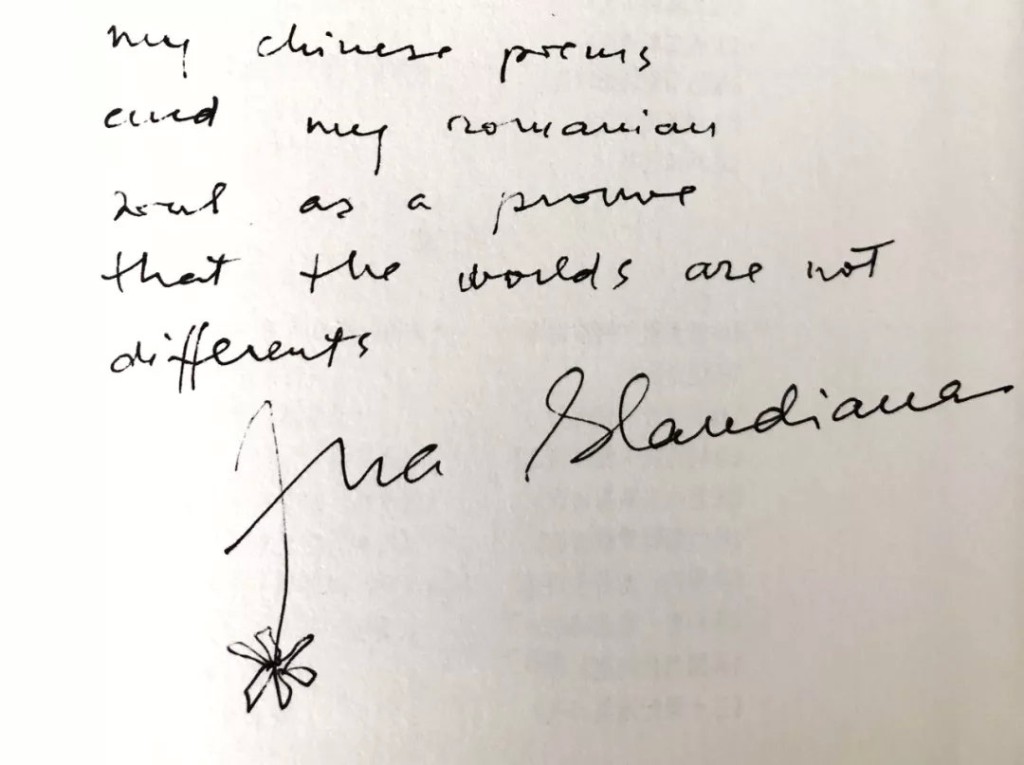 my chinese poems
and my romanian
soul as a prouve
that the worlds are not
differents
Ana Blandiana